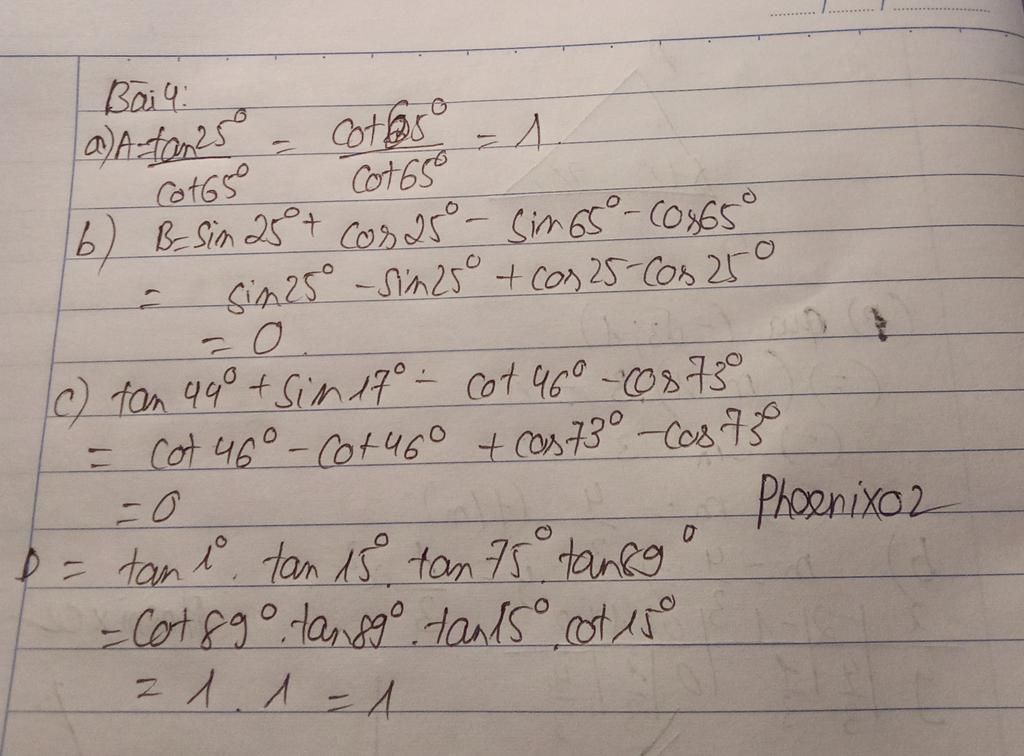 Bài 4:
a) A = tan25° / cot65° = cot65° / cot65° = 1.
b) B = sin25° + cos25° - sin65° - cos65°
= sin25° - sin25° + cos25 - cos25°
= 0.
c) tan 44° + sin 17° - cot 46° - cos73°
= cot 46° - cot 46° + cos73° - cos73°
= 0
Phoenix02
D = tan 1°. tan 15°. tan 75°. tan89°
= cot 89°. tan89°. tan15°. cot 15°
= 1. 1 = 1